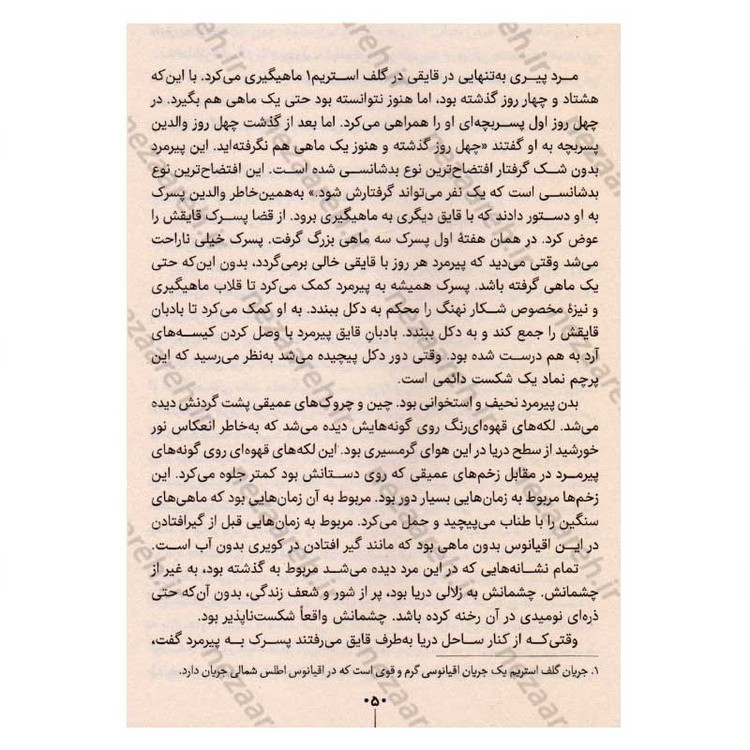 مرد پیری به‌تنهایی در قایقی در گلف استریم۱ ماهیگیری می‌کرد. با این‌که
هشتاد و چهار روز گذشته بود، اما هنوز نتوانسته بود حتی یک ماهی هم بگیرد. در
چهل روز اول پسربچه‌ای او را همراهی می‌کرد. اما بعد از گذشت چهل روز والدین
پسربچه به او گفتند «چهل روز گذشته و هنوز یک ماهی هم نگرفته‌اید. این پیرمرد
بدون شک گرفتار افتضاح‌ترین نوع بدشانسی شده است. این افتضاح‌ترین نوع
بدشانسی است که یک نفر می‌تواند گرفتارش شود.» به‌همین‌خاطر والدین پسرک
به او دستور دادند که با قایق دیگری به ماهیگیری برود. از قضا پسرک قایقش را
عوض کرد. در همان هفتهٔ اول پسرک سه ماهی بزرگ گرفت. پسرک خیلی ناراحت
می‌شد وقتی می‌دید که پیرمرد هر روز با قایقی خالی برمی‌گردد، بدون این‌که حتی
یک ماهی گرفته باشد. پسرک همیشه به پیرمرد کمک می‌کرد تا قلاب ماهیگیری
و نیزهٔ مخصوص شکار نهنگ را محکم به دکل ببندد. به او کمک می‌کرد تا بادبان
قایقش را جمع کند و به دکل ببندد. بادبانِ قایق پیرمرد با وصل کردن کیسه‌های
آرد به هم درست شده بود. وقتی دور دکل پیچیده می‌شد به‌نظر می‌رسید که این
پرچم نماد یک شکست دائمی است.
بدن پیرمرد نحیف و استخوانی بود. چین و چروک‌های عمیقی پشت گردنش دیده
می‌شد. لکه‌های قهوه‌ای‌رنگ روی گونه‌هایش دیده می‌شد که به‌خاطر انعکاس نور
خورشید از سطح دریا در این هوای گرمسیری بود. این لکه‌های قهوه‌ای روی گونه‌های
پیرمرد در مقابل زخم‌های عمیقی که روی دستانش بود کمتر جلوه می‌کرد. این
زخم‌ها مربوط به زمان‌هایی بسیار دور بود. مربوط به آن زمان‌هایی بود که ماهی‌های
سنگین را با طناب می‌پیچید و حمل می‌کرد. مربوط به زمان‌هایی قبل از گیرافتادن
در این اقیانوس بدون ماهی بود که مانند گیر افتادن در کویری بدون آب است.
تمام نشانه‌هایی که در این مرد دیده می‌شد مربوط به گذشته بود، به غیر از
چشمانش. چشمانش به زلالی دریا بود، پر از شور و شعف زندگی، بدون آن‌که حتی
ذره‌ای نومیدی در آن رخنه کرده باشد. چشمانش واقعاً شکست‌ناپذیر بود.
وقتی‌که از کنار ساحل دریا به‌طرف قایق می‌رفتند پسرک به پیرمرد گفت،
۱. جریان گلف استریم یک جریان اقیانوسی گرم و قوی است که در اقیانوس اطلس شمالی جریان دارد.
۵
nezaareh.ir